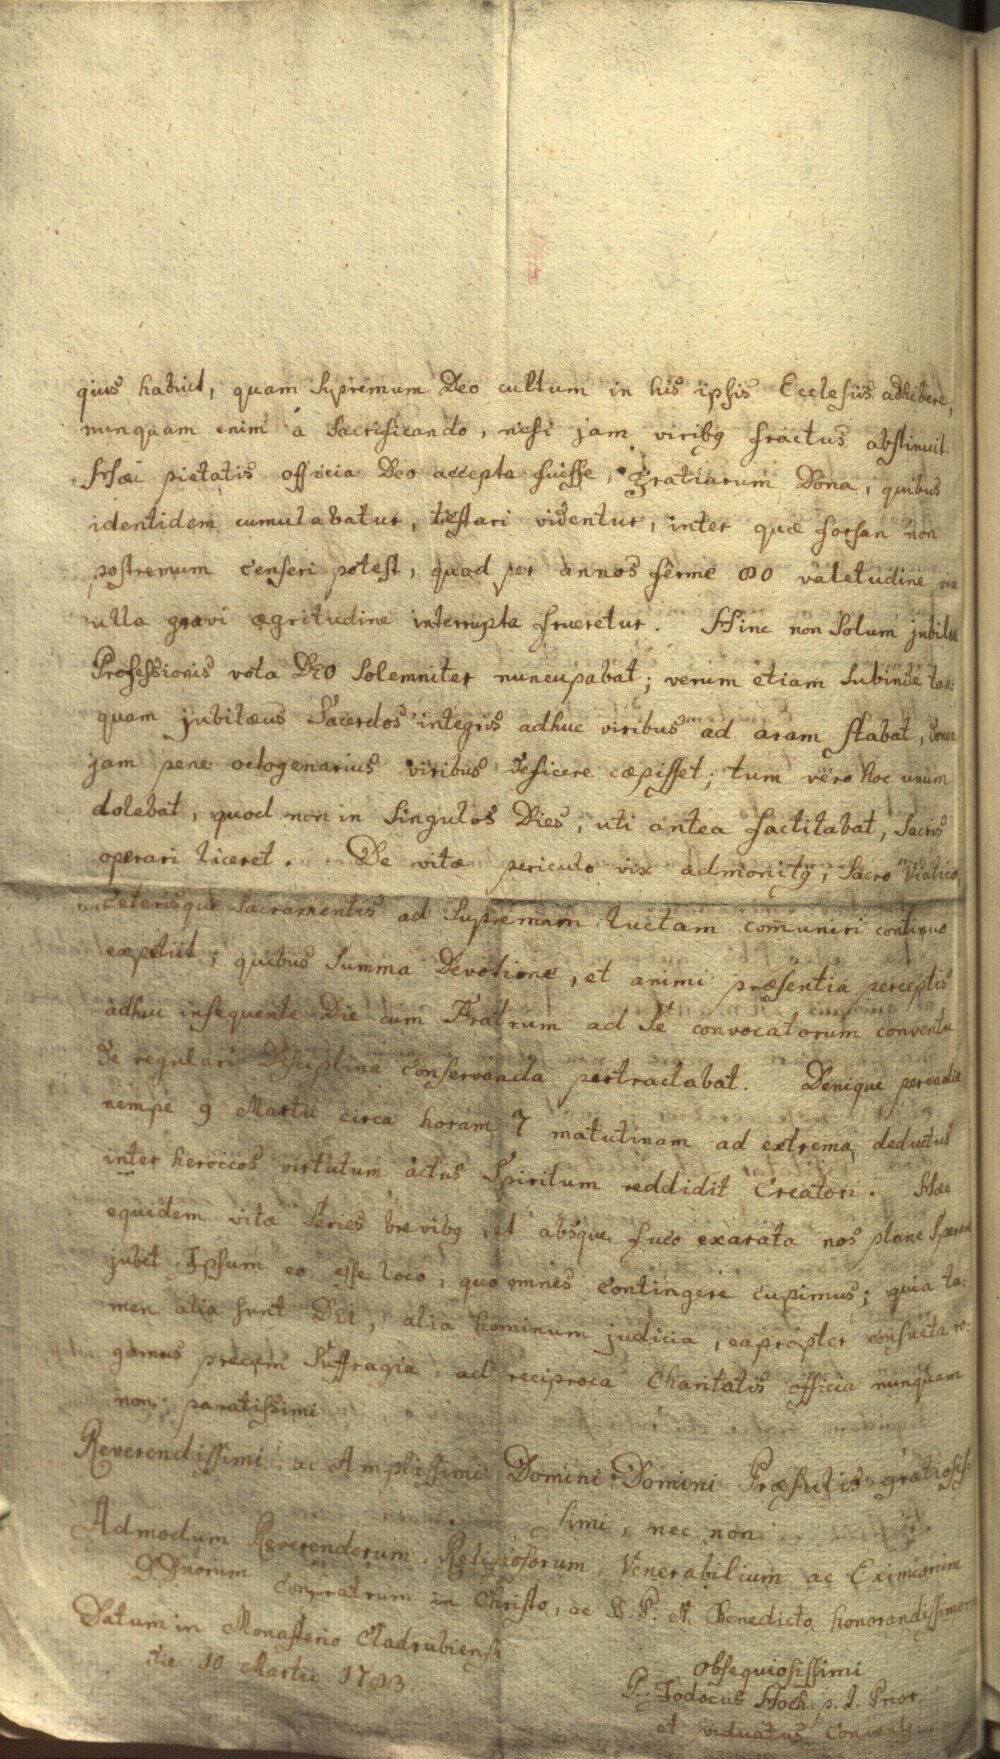 quis habuit, quam Supremum Deo cultum in his ipsis Ecclesiis adhibere,
nunquam enim á Sacrificando, nisi jam viribq fractus abstinuit.
Hæc pietatis officia Deo accepta fuisse, gratiarum Dona, quibus
identidem cumulabatur, testari videntur, inter quæ forsan non
postremum Censeri potest, quod per annos ferme 80 valetudine vix
ulla gravi ægritudine interrupta frueretur. Hinc non Solum
Professionis vota DEO Solemniter nuncupabat; verum etiam Subinde tan:
quam jubilæus Sacerdos integris adhuc viribus ad aram stabat, donec
jam pene octogenarius viribus deficere cæpisset; tum vero hoc unum
dolebat, quod non in Singulos Dies, uti antea factitabat, Sacris
operari liceret. De vitæ periculo vix admonitq, Sacro Viatico,
Ceterisque Sacramentis ad Supremam luctam com̄uniri continuo
expetiit; quibus Summa Devotione, et animi præsentia perceptis
adhuc insequente Die cum Fratrum ad Se convocatorum conventu
de regulari Disciplina Conservanda pertractabat. Denique perendie
nempe 9 Martii circa horam 7 matutinam ad extrema deductus
inter heroicos virtutum actus Spiritum reddidit Creatori. Hæc
equidem vitæ Series brevibq, et absque fuco exarata nos plane
jubet Ipsum eo esse loco, quo omnes Contingere cupimus; quia ta:
men alia sunt Dei, alia hominum judicia, eapropter consueta ro:
gamus precum Suffragia, ad reciproca Charitatis officia nunquam
non paratissimi
Reverendissimi, ac Amplissimi Domini Domini Præsulis gratiosis:
simi, nec non
Admodum Reverendorum, Religiosorum, Venerabilium ac Eximiorum
DDnorum Confratrum in Christo, ac S. P. N. Benedicto honorandissimorum
Datum in Monasterio Cladrubiensi
die 10 Martii 1783.
Obsequiosissimi
P. Jodocus Hoch, p. t. Prior,
et viduatus Conventq